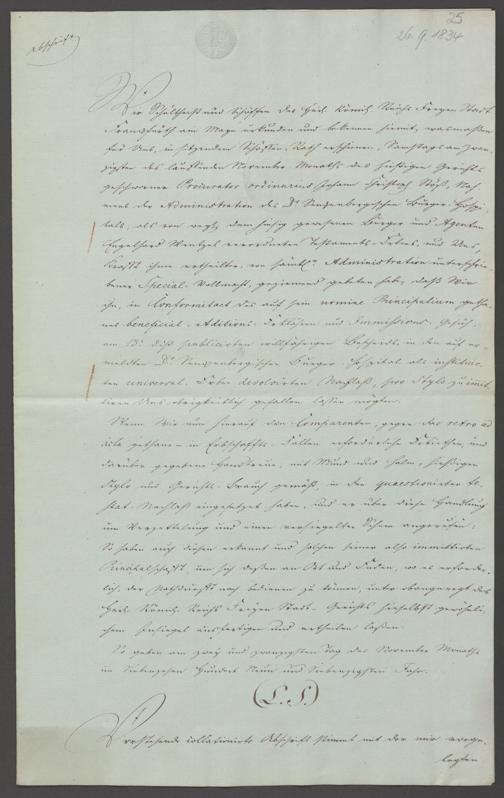 25
26. 9. 1834
Abschrift
Wir Schultheiß und Schöffen des Heil. Römis. Reichs Freyen Stadt
Franckfurth am Mayn urkunden und bekennen hiemit, wasmaßen
für Uns, in sitzendem Schöffen-Rath erschienen, Samstags am zwan-
zigsten des laufenden November Monaths der hiesigen Gerichts
geschworne Procurator ordinarius Johann Christoph
mens der Administration des Dr. Senckenbergischen Bürger-Hospi-
tals, als von weyl. dem hiesig gewesenen Bürger und Agenten
Engelhard Wentzel verordneten Testaments-Erben, und Uns,
Krafft ihme ertheilter, von sämtl. Administration unterschrie-
bener Special-Vollmacht, geziemend gebeten habe, daß Wir
ihn, in Conformitaet des auf sein nomine Principalium gethanes
beneficial-Aditions- und Immissions-Gesuch,
am publicirten willfährigen Bescheids, in den auf er-
meldten Dr. Senckenbergischer Bürger-Hospital als instituir-
ten universal-Erben devolvirten Nachlaß, pro Stylo zu immit-
tiren Uns obrigkeitlich gefallen lassen mögten.
Wenn Wir nun hierauf den Comparenten, gegen das retro ad
acta gethane in Erbschaffts-Fällen erforderliche Erbiethen, und
darüber gegebene Handtreue, mit Mund und Halm, hiesigem
Stylo und Gerichts-Brauch gemäß, in den quaestionirten te-
stat. Nachlaß eingesetzet haben, und er über diese Handlung
um und einen versiegelten Schein angerufen;
So haben auch diesen erkannt und solchen seiner also immittirten
Principalschafft, um sich dessen an Ort und Enden, wo es erforder-
lich, der Nothdurfft nach bedienen zu können, unter obangeregt des
Heil. Römis. Reichs Freyen Stadt-Gerichts hieselbst gewöhnli-
chem Insiegel ausfertigen und ertheilen lassen.
So geben am zwey und zwanzigsten Tag des November Monaths
im Siebenzehen Hundert Neun und Siebenzigsten Jahr.
(L. S.)
Vorstehende collationirte Abschrift stimmt mit der mir vorge-
legten